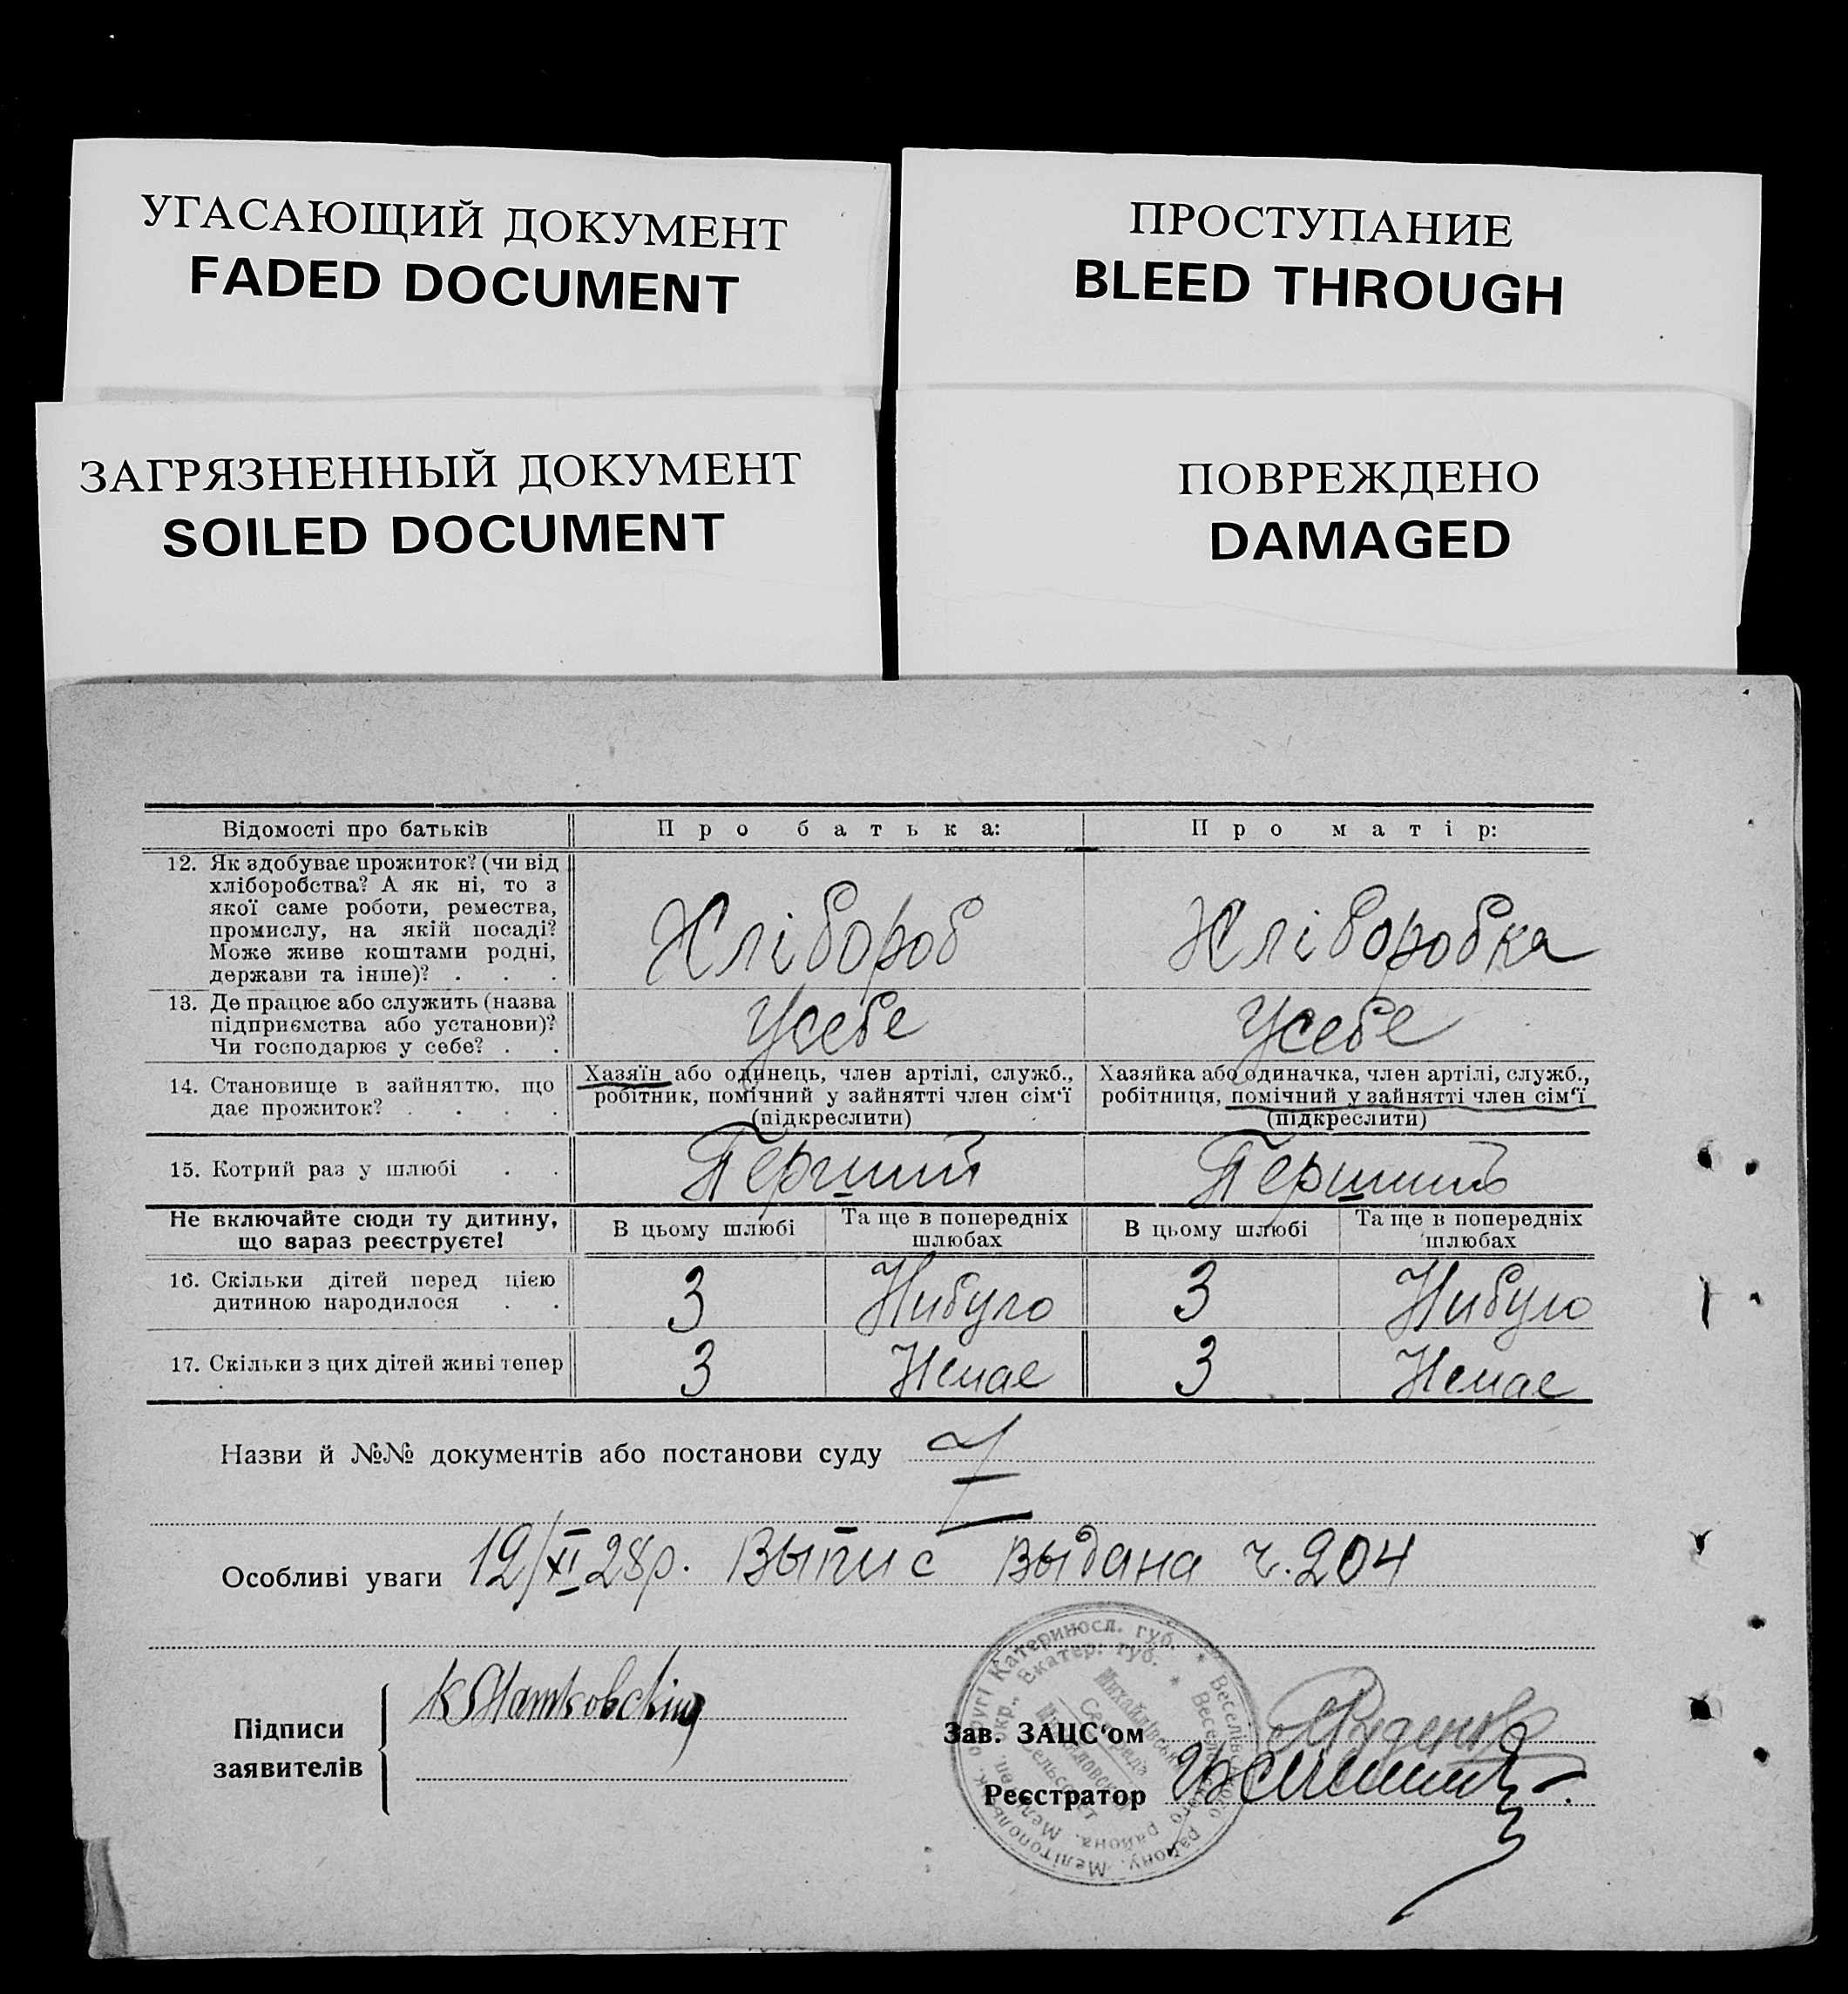 УГАСАЮЩИЙ ДОКУМЕНТ
FADED DOCUMENT
ПРОСТУПАНИЕ
BLEED THROUGH
ЗАГРЯЗНЕННЫЙ ДОКУМЕНТ
SOILED DOCUMENT
ПОВРЕЖДЕНО
DAMAGED
Відомості про батьків
Про батька:
Про матір:
12. Як здобуває прожиток? (чи від
хліборобства? А як ні, то з
якої саме роботи, ремества,
промислу, на якій посаді?
Може живе коштами родні,
держави та інше)? . . .
Хлібороб
Хліборобка
13. Де працює або служить (назва
підприємства або установи)?
Чи господарює у себе? . .
Усебе
Усебе
14. Становище в зайняттю, що
дає прожиток? . . . .
Хазяїн або одинець, член артілі, служб.,
робітник, помічний у зайнятті член сім'ї
(підкреслити)
Хазяйка або одиначка, член артілі, служб.,
робітниця, помічний у зайнятті член сім'ї
(підкреслити)
15. Котрий раз у шлюбі . .
Перший
Перший
Не включайте сюди ту дитину,
що зараз реєструєте!
В цьому шлюбі
Та ще в попередніх
шлюбах
В цьому шлюбі
Та ще в попередніх
шлюбах
16. Скільки дітей перед цією
дитиною народилося . .
3
Нибуло
3
Нибуло
17. Скільки з цих дітей живі тепер
3
Немае
3
Немае
Назви й №№ документів або постанови суду
Особливі уваги 12/XI 28р. Выпис выдана ч. 204
Підписи
заявителів
Зав. ЗАЦС'ом
Реєстратор
Веселівського району, Мелітопольськ. округі Катериносл. губ.
Веселовского района, Мелитоп. окр., Екатер. губ.
Михайлівська
Сельрада
Михайловский
Сельсовет